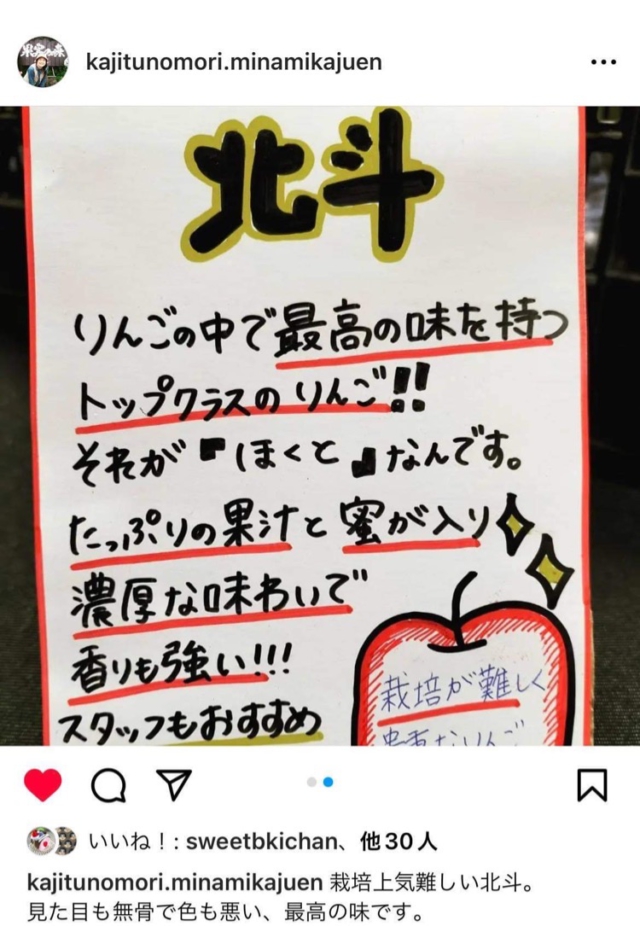 kajitunomori.minamikajuen
北斗
りんごの中で最高の味を持つ
トップクラスのりんご!!
それが『ほくと』なんです。
たっぷりの果汁と蜜が入り
濃厚な味わいで
香りも強い!!!
スタッフもおすすめ
栽培が難しく
いいね！: sweetbkichan、他30人
kajitunomori.minamikajuen 栽培上気難しい北斗。
見た目も無骨で色も悪い、最高の味です。